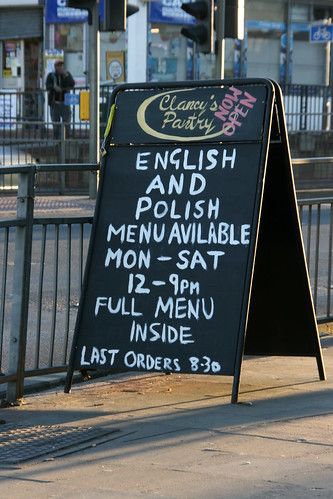 Clancy's
Pantry
NOW
OPEN
ENGLISH
AND
POLISH
MENU AVILABLE
MON - SAT
12 - 9PM
FULL MENU
INSIDE
LAST ORDERS 8-30